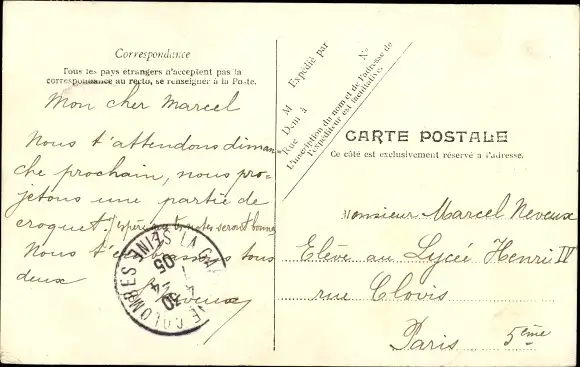 Correspondance
Tous les pays étrangers n'acceptent pas la
correspondance au recto, se renseigner à la Poste.
Mon cher Marcel
Nous t'attendons diman
che prochain, nous pro-
jetons une partie de
croquet. (espérons tes notes seront bonnes
Nous t' tous
deux
Neveux
LA GARENNE COLOMBES SEINE
30
4
05
Expédié par
N°
M
Dem à
Rue
L'inscription du nom et de l'adresse de
l'expéditeur est facultative.
CARTE POSTALE
Ce côté est exclusivement réservé a l'adresse.
Monsieur Marcel Neveux
Elève au Lycée Henri IV
rue Clovis
Paris 5ème